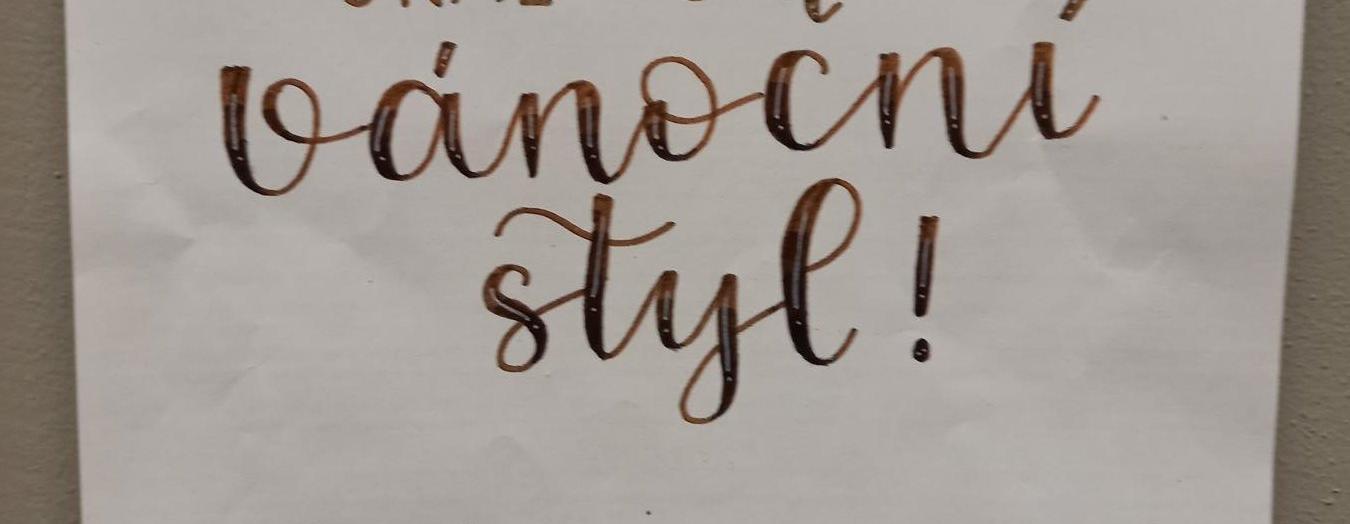 vánoční
styl!